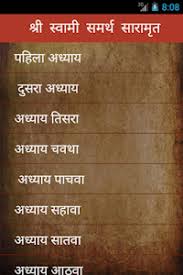 8:08
श्री स्वामी समर्थ सारामृत
पहिला अध्याय
दुसरा अध्याय
अध्याय तिसरा
अध्याय चवथा
अध्याय पाचवा
अध्याय सहावा
अध्याय सातवा
अध्याय आठवा